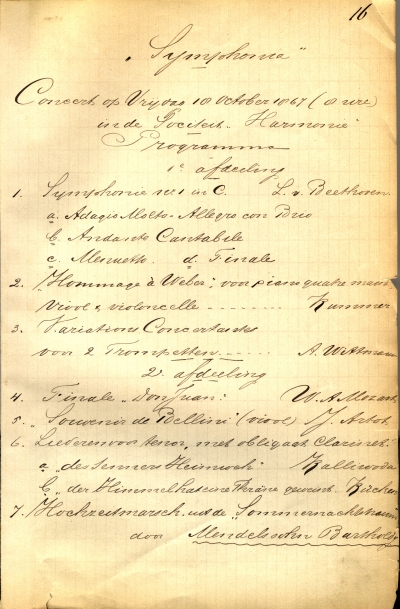 16
„Symphonia"
Concert op Vrijdag 18 October 1867 (8 ure)
in de Sociteit „Harmonie"
Programma
1e afdeeling
1. Symphonie no 1 in C. L. v. Beethoven
a. Adagio Molto - Allegro con Brio
b. Andante Cantabile
c. Menuetto d. Finale
2. „Hommage à Weber", voor piano quatre mains
viool & violoncelle Kummer
3. Variations Concertantes
voor 2 Trompetten A. Wittmann
2e afdeeling
4. Finale „Don Juan" W. A. Mozart
5. „Souvenir de Bellini" (viool) J. Artot
6. Liederen voor tenor, met obligaat Clarinet
a. „des Senners Heimweh" Kalliwoda
b. „der Himmel hat eine Thräne geweint" Kücken
7. „Hochzeitmarsch" uit de „Sommernachtstraum"
door Mendelssohn Bartholdy